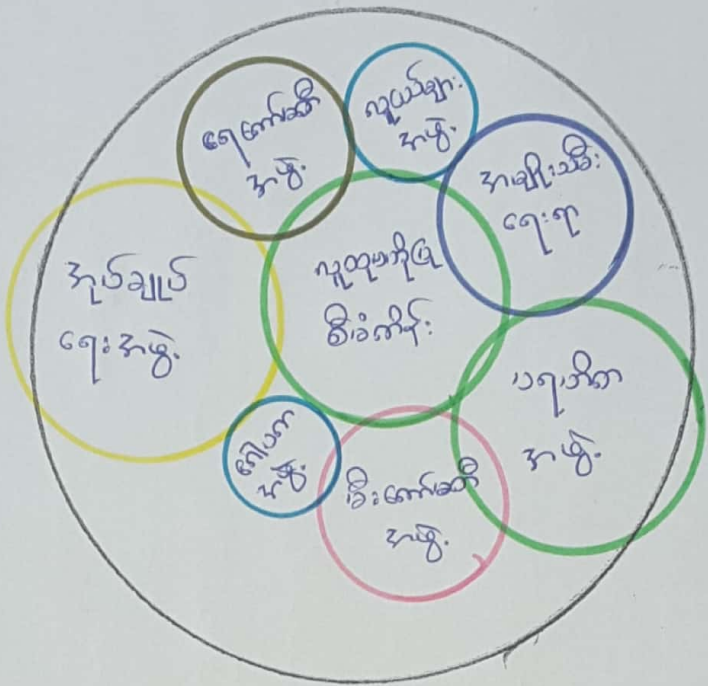 ရေကော်မတီ
အဖွဲ့
လူငယ်များ
အဖွဲ့
အမျိုးသမီး
ရေးရာ
အုပ်ချုပ်
ရေးအဖွဲ့
လူထုဗဟိုပြု
စီမံကိန်း
ပရဟိတ
အဖွဲ့
ဂေါပက
အဖွဲ့
မီးကော်မတီ
အဖွဲ့